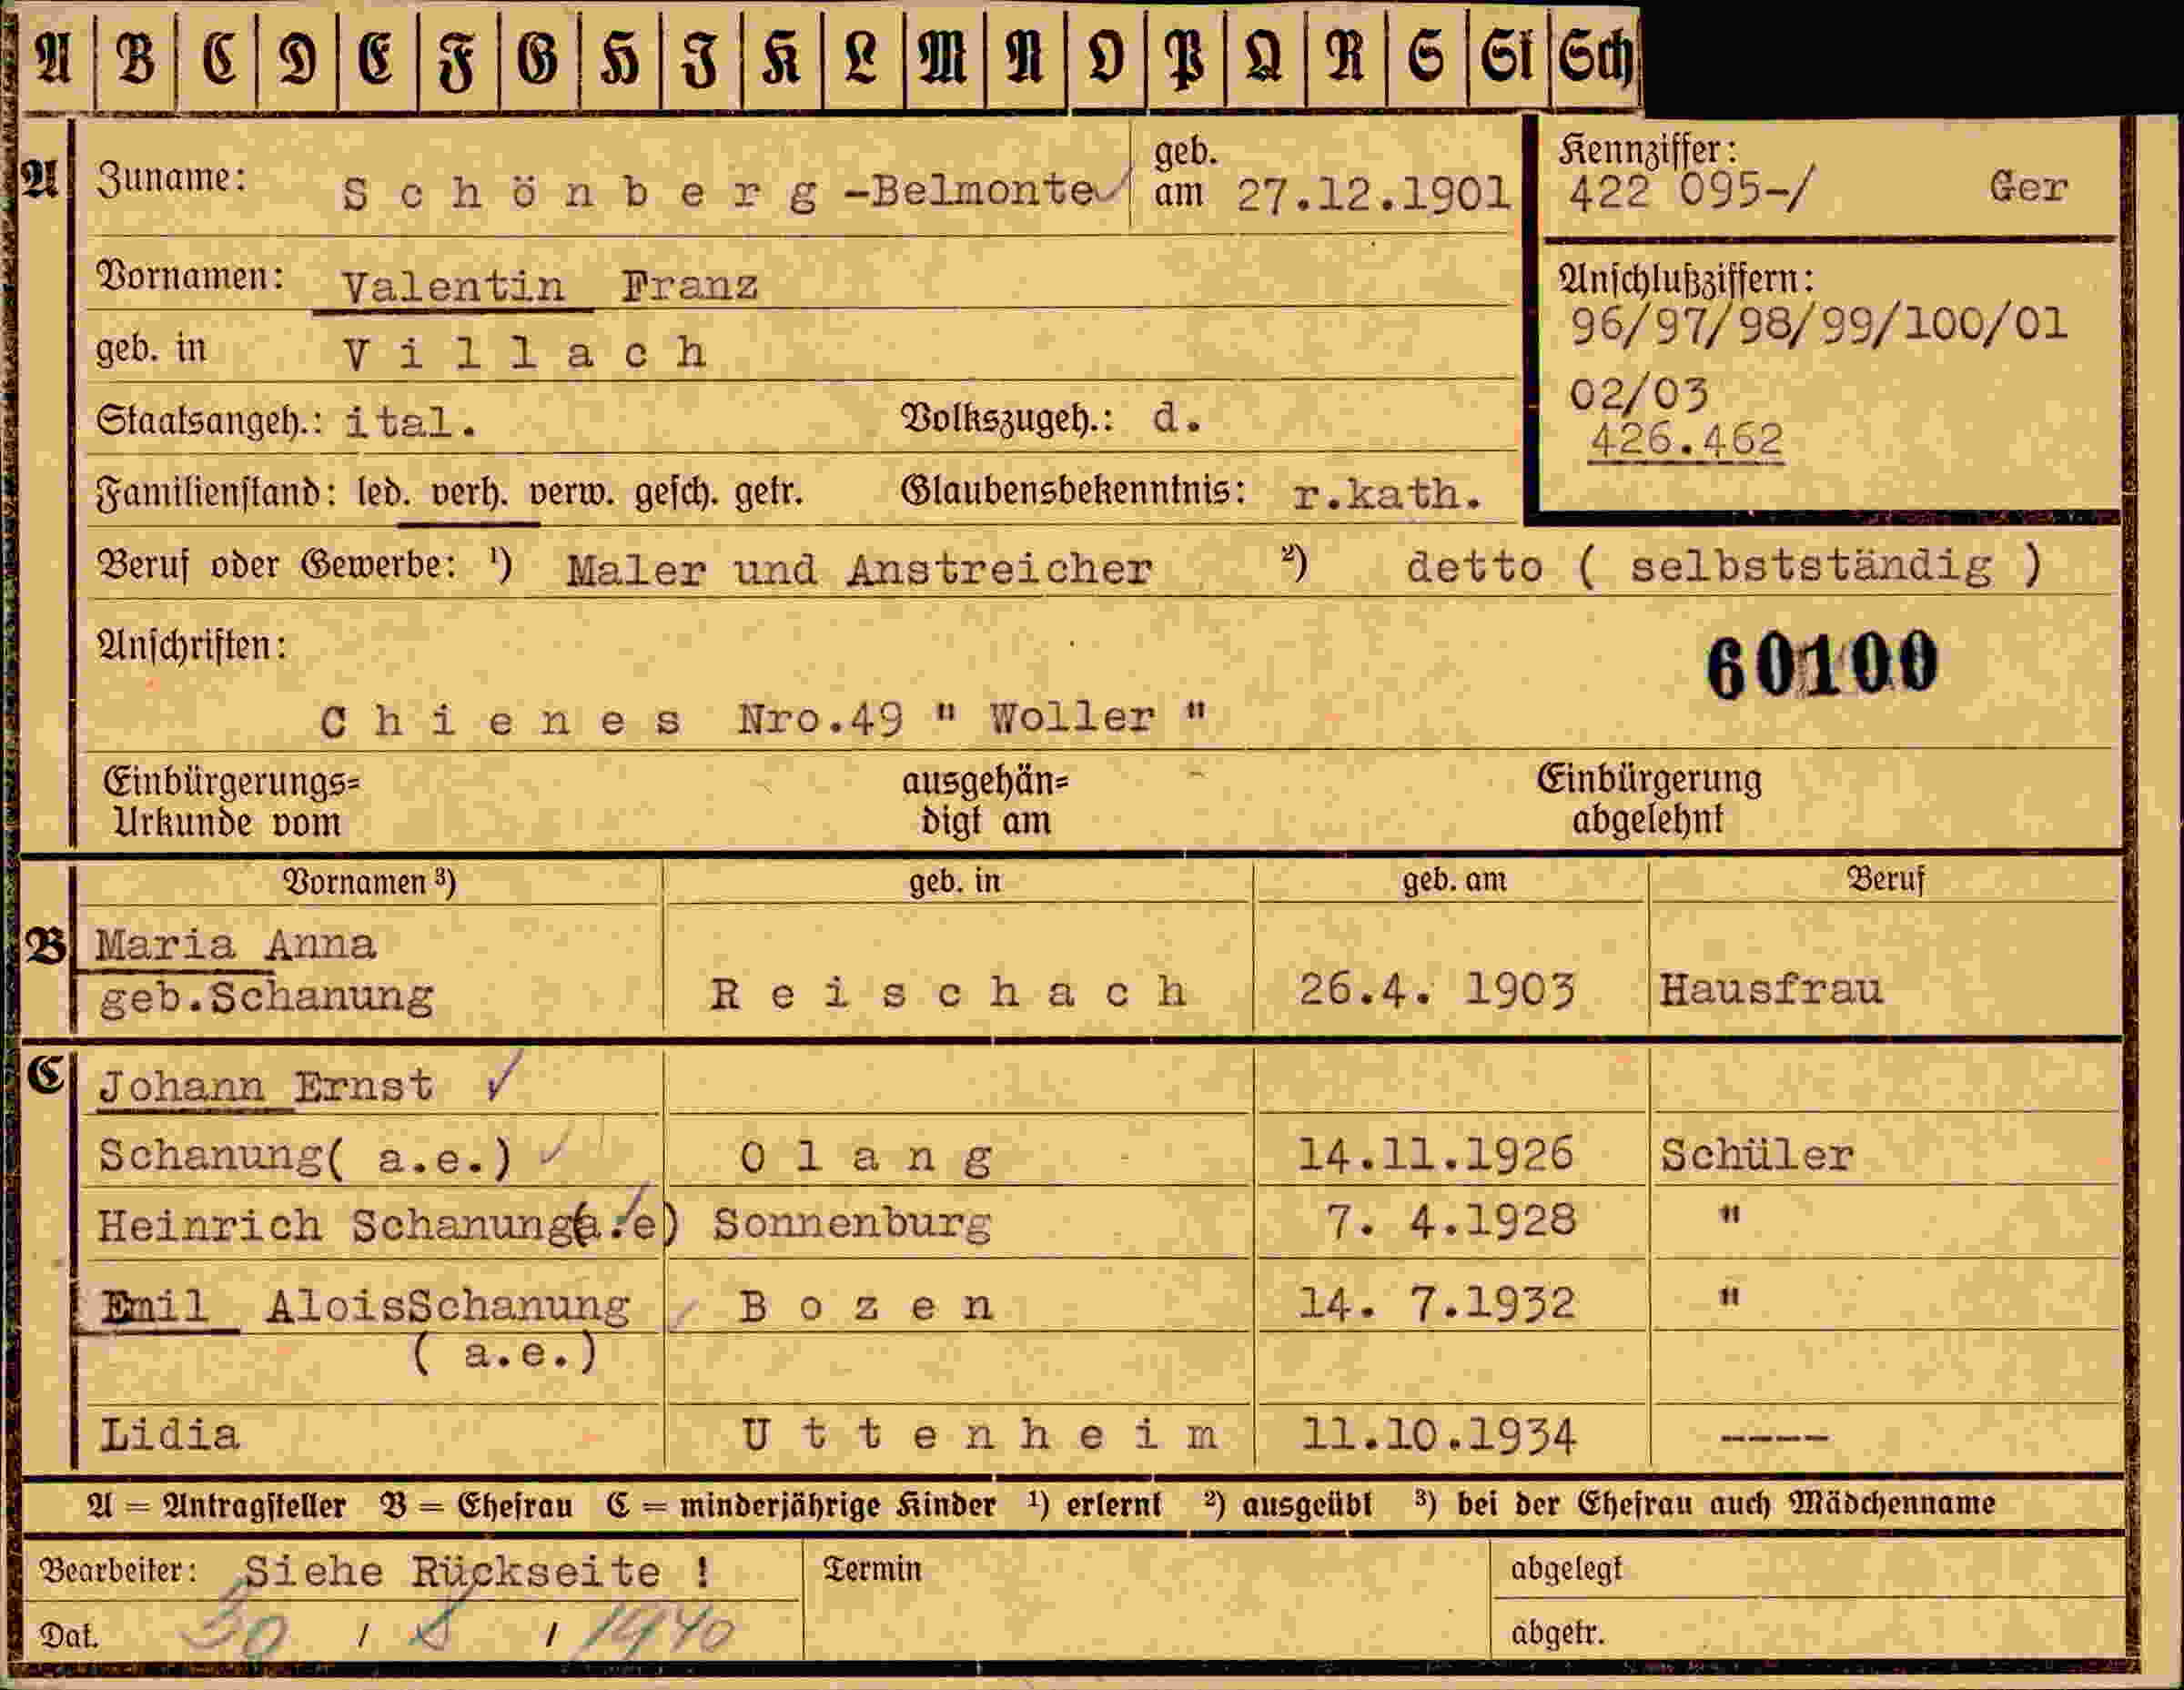 A B C D E F G H I K L M N O P Q R S St Sch
A Zuname: Schönberg-Belmonte geb. am 27.12.1901
Kennziffer:
422 095-/ Ger
Vornamen: Valentin Franz
Anschlußziffern:
96/97/98/99/100/01
geb. in Villach
02/03
Staatsangeh.: ital. Volkszugeh.: d.
426.462
Familienstand: led. verh. verw. gesch. getr. Glaubensbekenntnis: r.kath.
Beruf oder Gewerbe: ¹) Maler und Anstreicher ²) detto ( selbstständig )
Anschriften:
60100
Chienes Nro.49 " Woller "
Einbürgerungs= ausgehän= Einbürgerung
Urkunde vom digt am abgelehnt
Vornamen ³) geb. in geb. am Beruf
B Maria Anna
geb.Schanung Reischach 26.4. 1903 Hausfrau
C Johann Ernst ✓
Schanung( a.e.) ✓ Olang 14.11.1926 Schüler
Heinrich Schanung(a.e) Sonnenburg 7. 4.1928 "
Emil AloisSchanung Bozen 14. 7.1932 "
( a.e.)
Lidia Uttenheim 11.10.1934 ----
A = Antragsteller B = Ehefrau C = minderjährige Kinder ¹) erlernt ²) ausgeübt ³) bei der Ehefrau auch Mädchenname
Bearbeiter: Siehe Rückseite ! Termin abgelegt
Dat. 30 / 8 / 1940 abgetr.